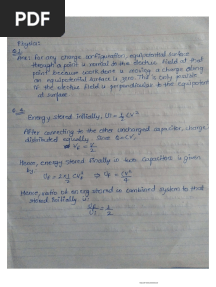 PDF
Physics
Ans: For any charge configuration, equipotential surface
through a point is normal to the electric field at that
point because work done in moving a charge along
an equipotential surface is zero. This is only possible
if the electric field is perpendicular to the equipotential
surface
Energy stored initially, U = ½ CV²
After connecting to the other uncharged capacitor, charge
distributed equally. Since
Hence, energy stored finally in two capacitors is given
by
Hence, ratio of energy stored in combined system to that
stored initially